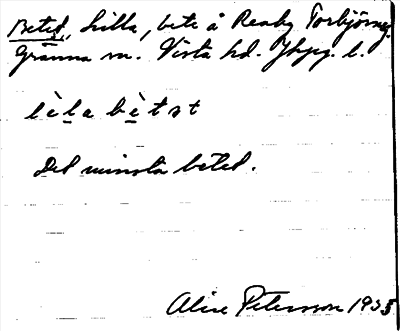 Betet, Lilla, bete å Reaby Torbjörneg.
Gränna sn. Vista hd. Jkpg. l.
lèla bètət
Det minsta betet.
Alice Peterson 1935